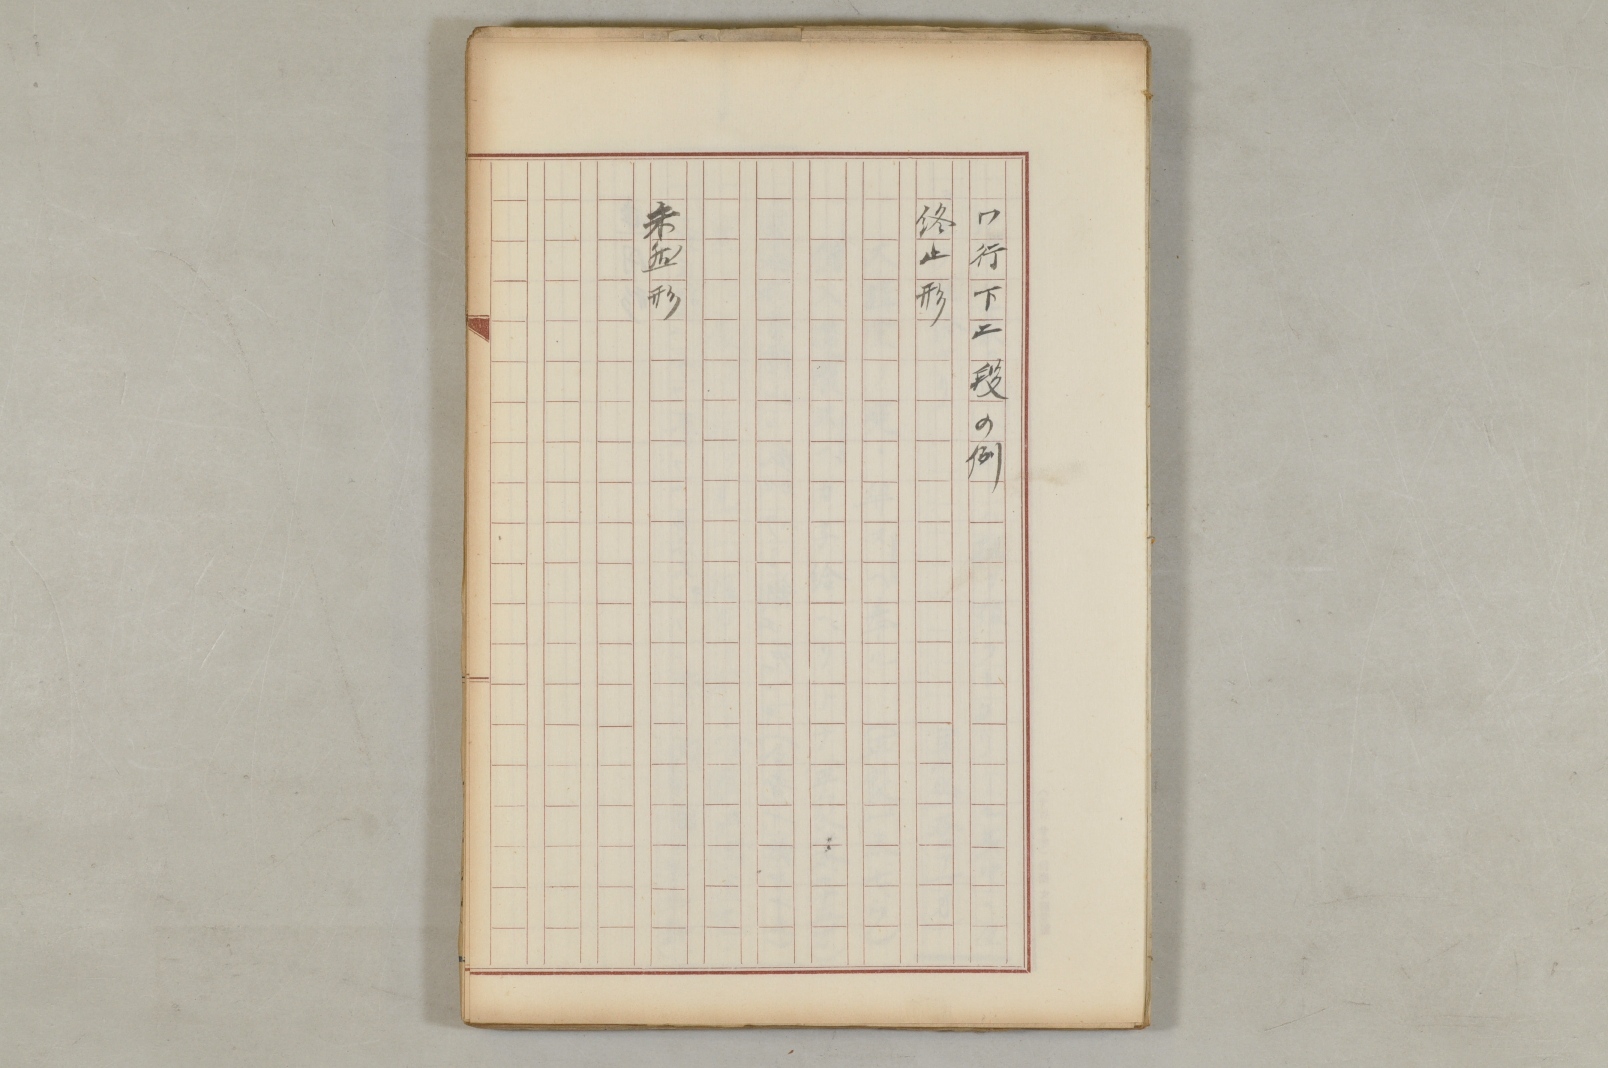 ワ行下二段の例
終止形
未然形